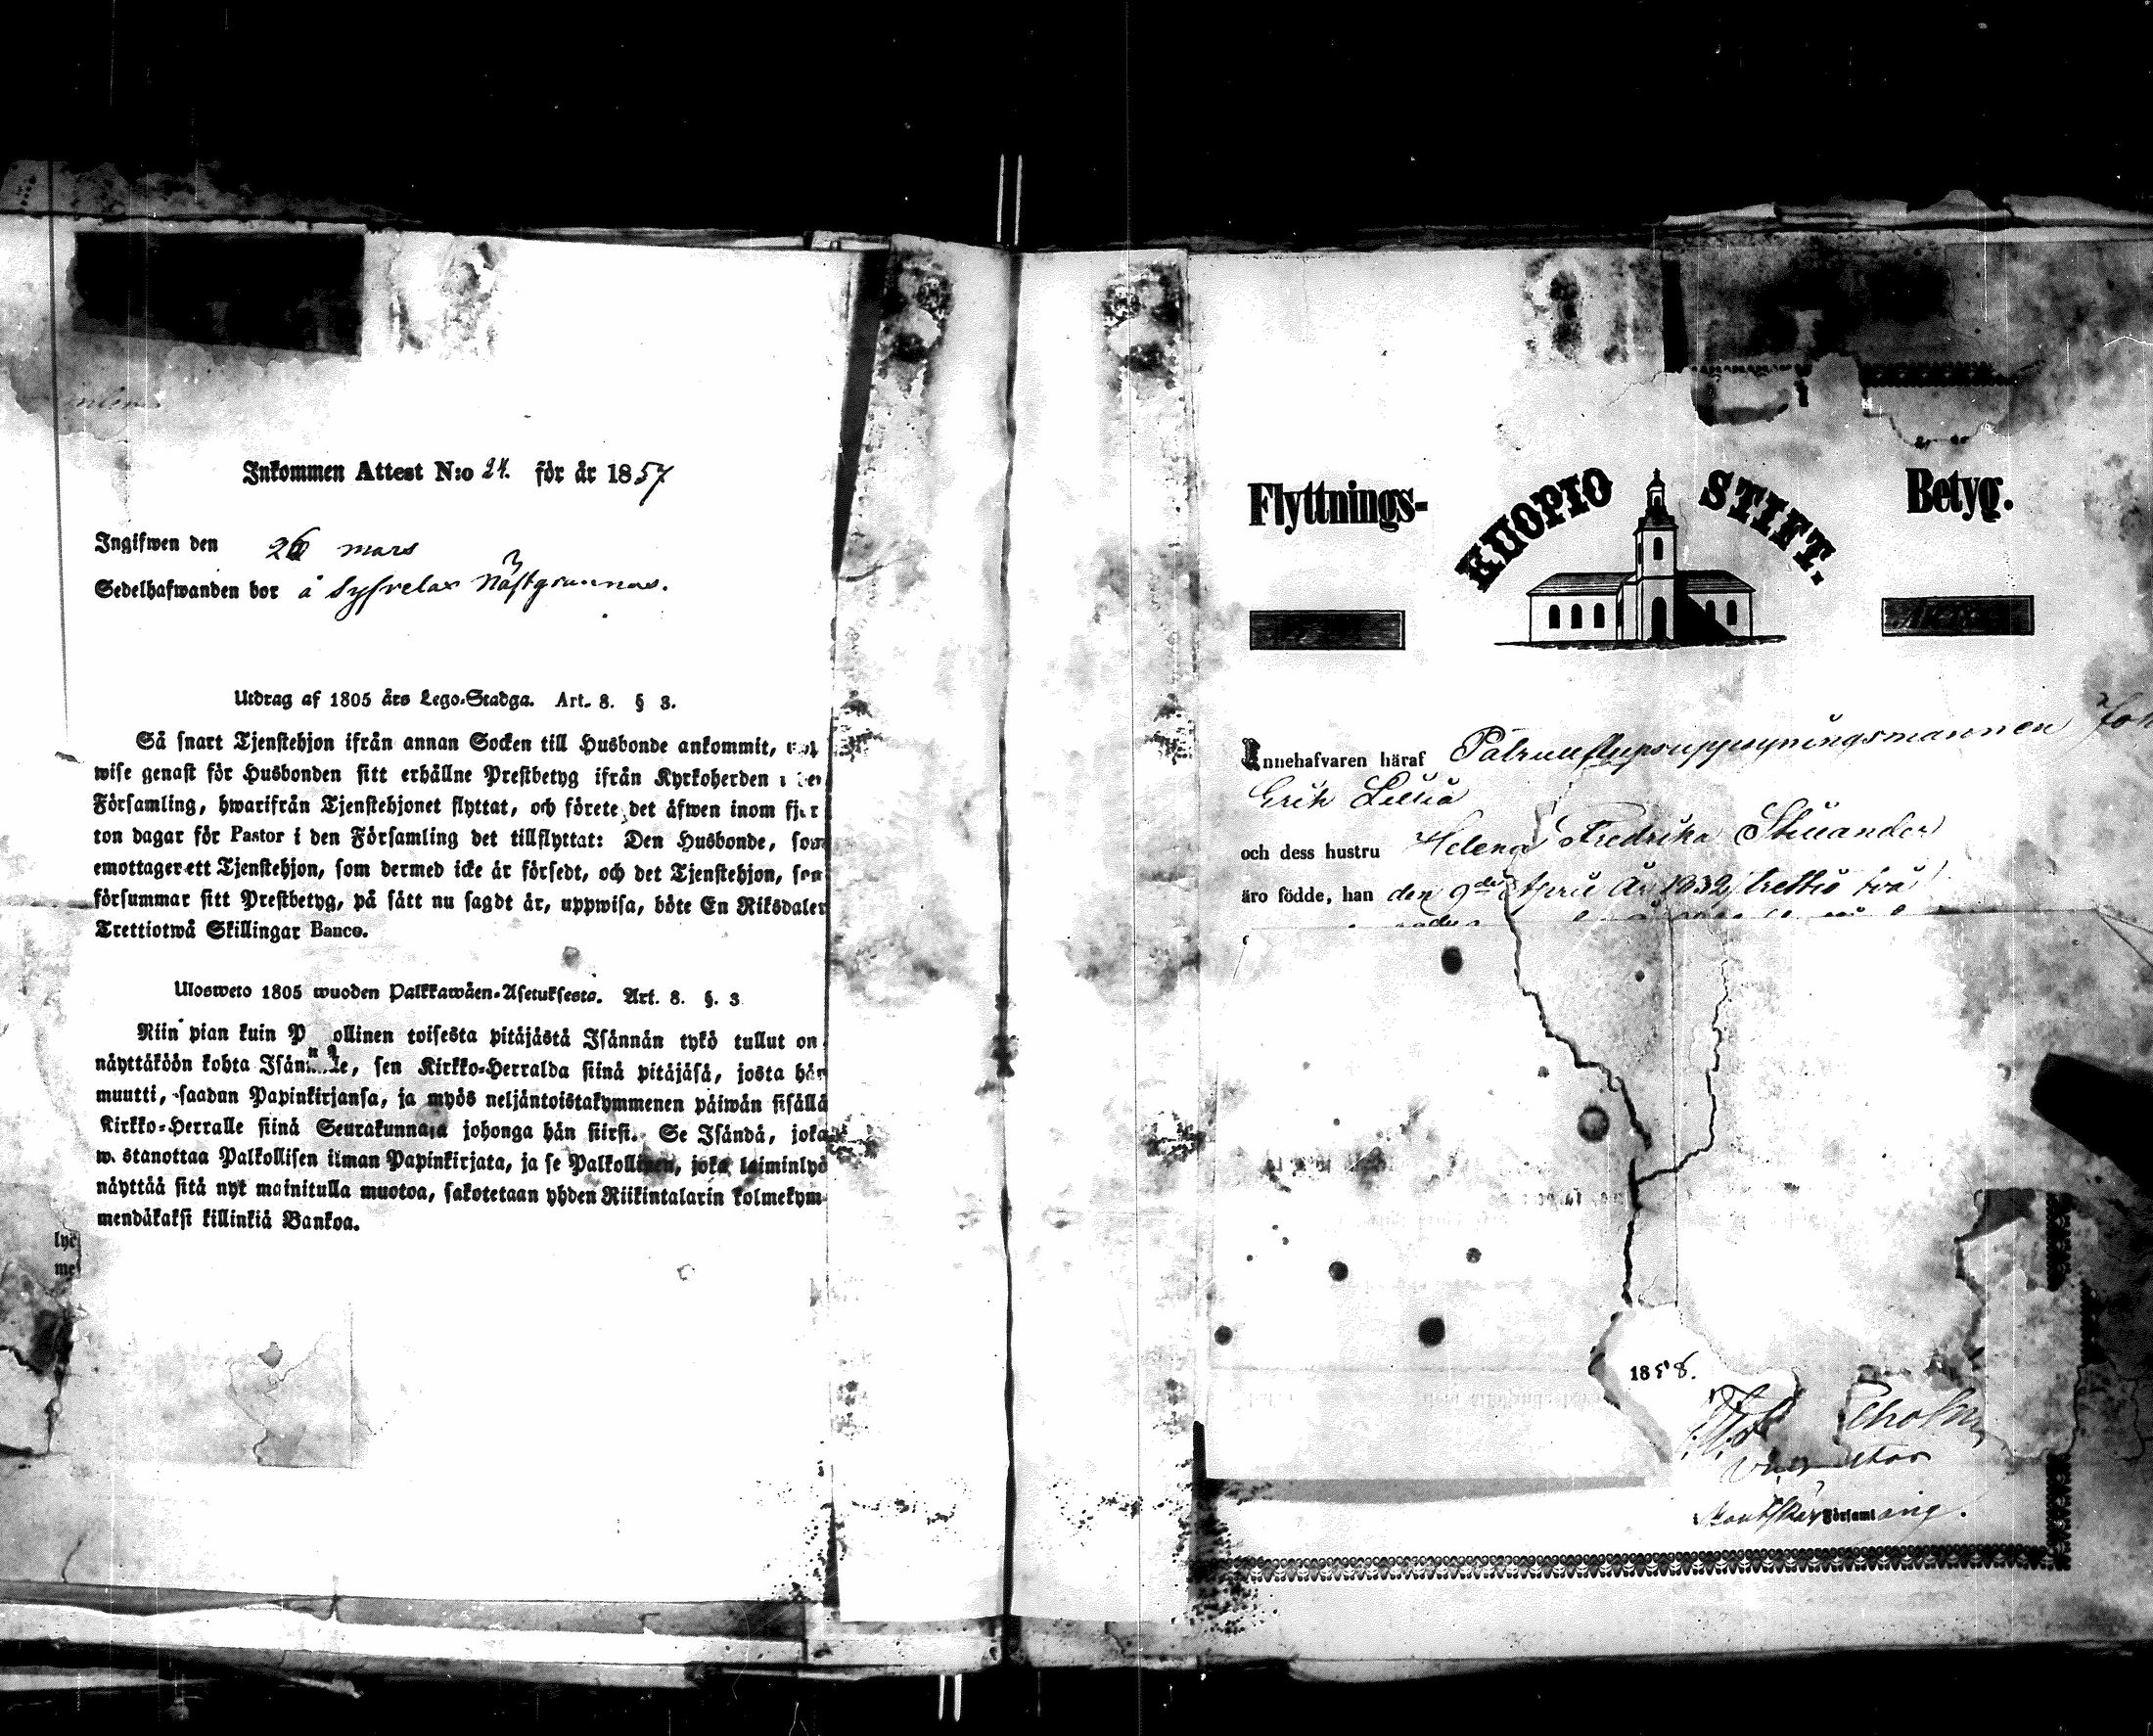 Inkommen Attest N:o 24. för år 1857
Ingifwen den 26 mars
Sedelhafwanden bor å Syfvelax Näsfgrannas.
Utdrag af 1805 års Lego-Stadga. Art. 8. § 3.
Så snart Tjenstehjon ifrån annan Socken till Husbonde ankommit,
wise genast för Husbonden sitt erhållne Prestbetyg ifrån Kyrkoherden i
Församling, hwarifrån Tjenstehjonet flyttat, och förete det äfwen inom fjor
ton dagar för Pastor i den Församling det tillflyttat: Den Husbonde, som
emottager ett Tjenstehjon, som dermed icke är försedt, och det Tjenstehjon, som
försummar sitt Prestbetyg, på sätt nu sagdt är, uppwisa, böte En Riksdaler
Trettiotwå Skillingar Banco.
Ulosweto 1805 wuoden Palkkawäen-Asetuksesta. Art. 8. §. 3
Niin pian kuin P ollinen toisesta pitäjästä Isännän tykö tullut on
näyttäköön kohta Isän le, sen Kirkko-Herralda siinä pitäjäsä, josta hän
muutti, saadun Papinkirjansa, ja myös neljäntoistakymmenen päiwän sisällä
Kirkko-Herralle siinä Seurakunnasa johonga hän siirsi. Se Isändä, joka
w. stanottaa Palkollisen ilman Papinkirjata, ja se Palkollinen, joka laiminlyö
näyttää sitä nyt mainitulla muotoa, sakotetaan yhden Riikintalarin kolmekym-
mendäkaksi killinkiä Bankoa.
lyö
me
Flyttnings- KUOPIO STIFT. Betyg.
Innehafvaren häraf
Erik Lillia
och dess hustru Helena Fredrika Stuander
äro födde, han den 9de April År 1832, trettio två
1858.
Församling.